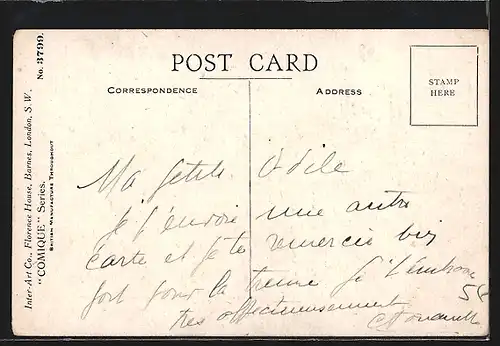 POST CARD
CORRESPONDENCE
ADDRESS
STAMP
HERE
Inter-Art Co., Florence House, Barnes, London, S.W.
No. 3799.
"COMIQUE" Series.
BRITISH MANUFACTURE THROUGHOUT
Ma petite Odile
Je t'envoie une autre
carte et je te remercie bien
fort pour la tienne Je t'embrasse
très affectueusement
58